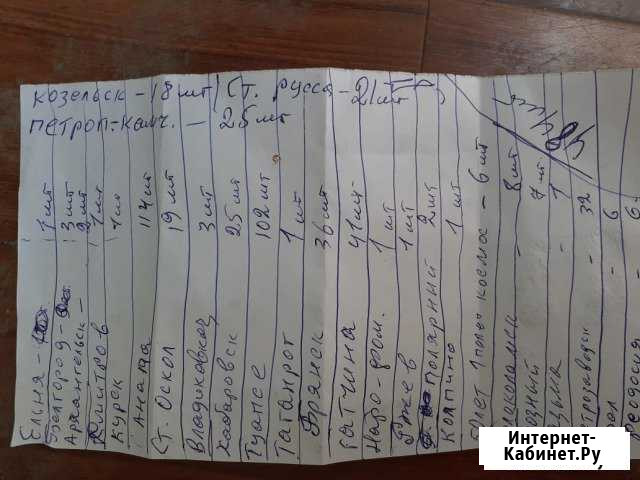 козельск - 18 шт
Ст. Русса - 21 шт
Петроп-камч. - 25 шт
Ельня - 1 шт
Белгород - 3 шт
Архангельск - 2 шт
Дмитров 1 шт
Курск 1 шт
Анапа 114 шт
Ст. Оскол 19 шт
Владикавказ 3 шт
Хабаровск 25 шт
Туапсе 102 шт
Таганрог 1 шт
Брянск 36 шт
Гатчина 41 шт
Наро-фом. 1 шт
Ржев 1 шт
полярный 2 шт
Колпино 1 шт
1 полёт космос - 6 шт
- 8 шт
- 7 шт
- 1
- 32
- 6
- 6
Интернет-
Кабинет.Ру